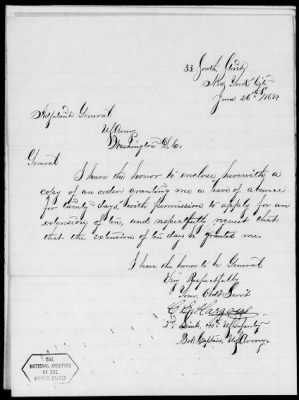 33 South Street
New York City
June 26th 1869
Adjutant General
U.S. Army
Washington D.C.
General
I have the honor to enclose, herewith, a
copy of an order granting me a leave of absence
for twenty days, with permission to apply for an
extension of ten, and respectfully request that
that the extension of ten days be granted me.
I have the honor to be General
Very Respectfully
Your Obdt Servt
1st Lieut. 40th U.S. Infantry
Bvt Captain, U.S. Army.
THE
NATIONAL ARCHIVES
OF THE
UNITED STATES